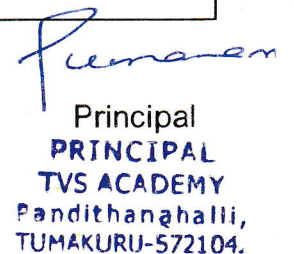 Principal
PRINCIPAL
TVS ACADEMY
Pandithanahalli,
TUMAKURU-572104.